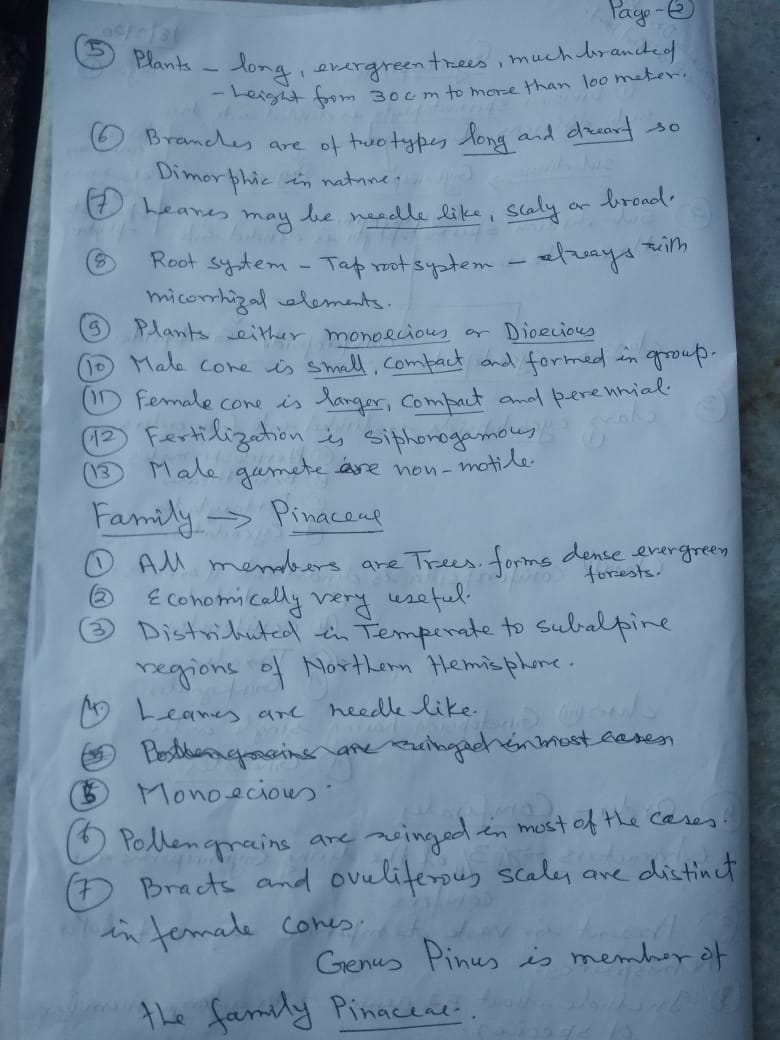 Page-②
⑤ Plants - long, evergreen trees, much branched
- height from 30cm to more than 100 meter.
⑥ Branches are of two types long and dwarf so
Dimorphic in nature.
⑦ Leaves may be needle like, scaly or broad.
⑧ Root system - Tap root system - always with
micorrhizal elements.
⑨ Plants either monoecious or Dioecious
⑩ Male cone is small, compact and formed in group.
⑪ Female cone is larger, compact and perennial.
⑫ Fertilization is siphonogamous
⑬ Male gamete are non-motile.
Family → Pinaceae
① All members are Trees. forms dense evergreen
forests.
② Economically very useful.
③ Distributed in Temperate to subalpine
regions of Northern Hemisphere.
④ Leaves are needle like.
⑤ Pollen grains are winged in most cases
⑤ Monoecious.
⑥ Pollen grains are winged in most of the cases.
⑦ Bracts and ovuliferous scales are distinct
in female cones.
Genus Pinus is member of
the family Pinaceae.